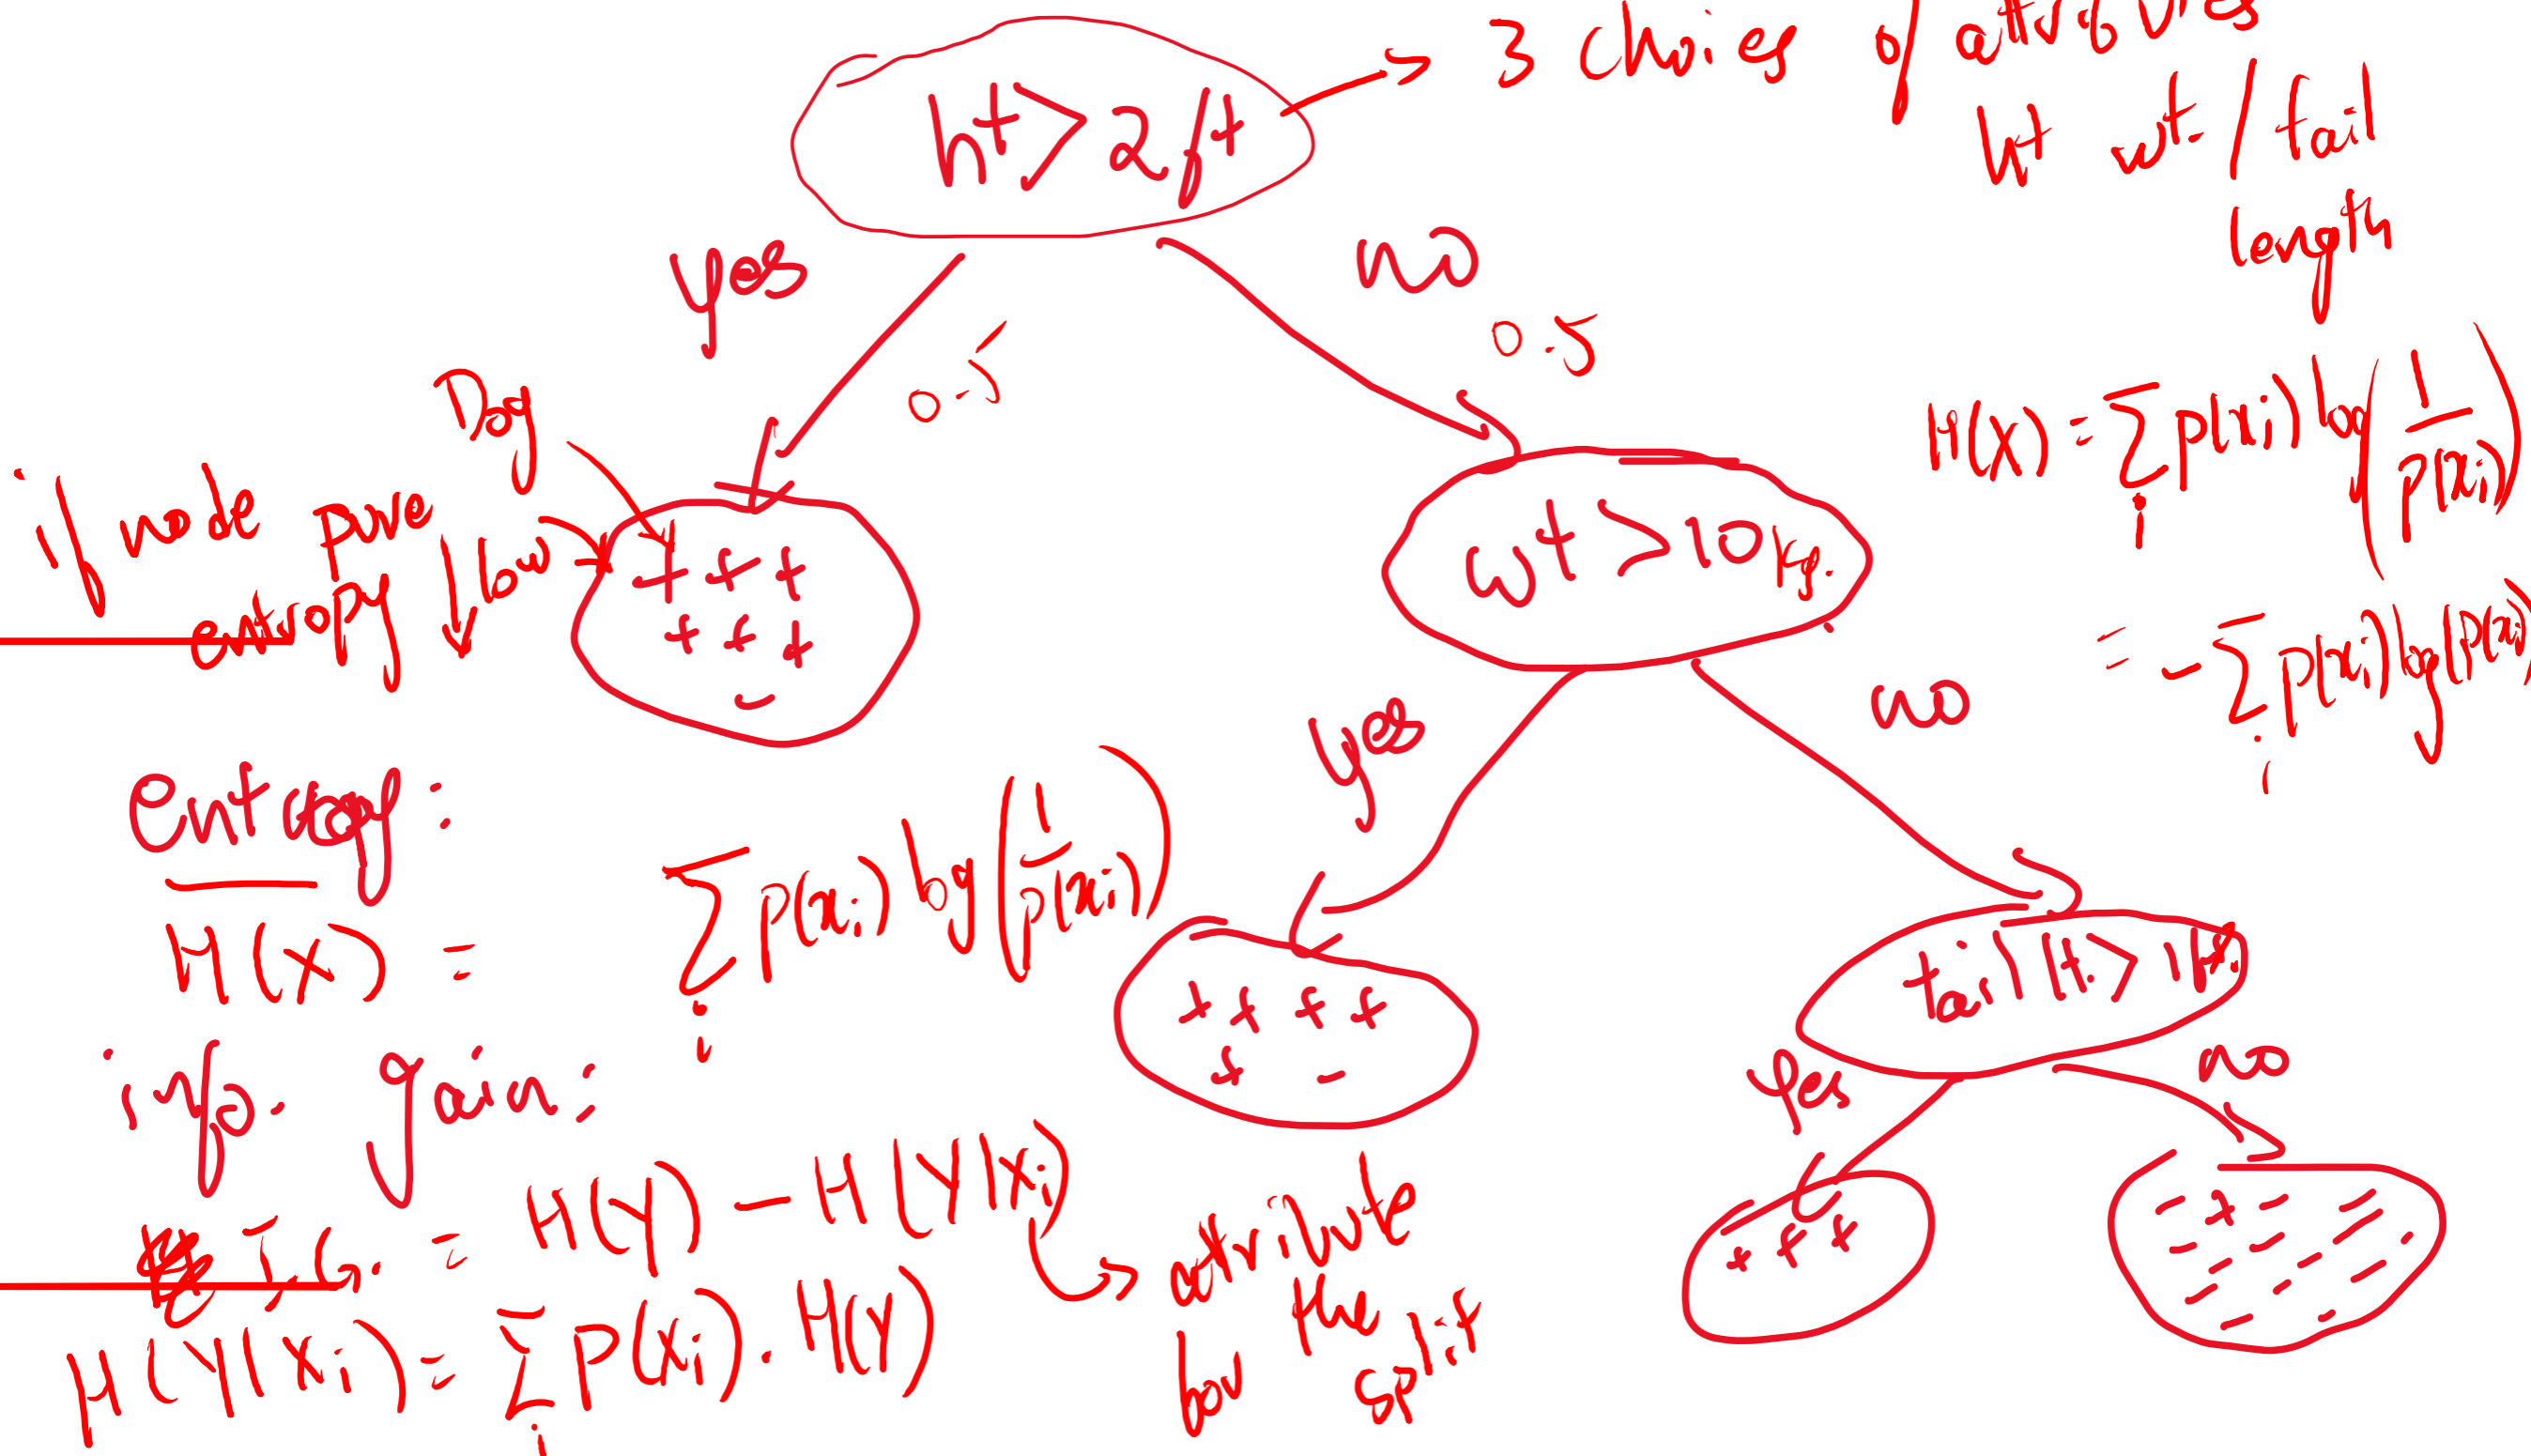 ht > 2 ft
→ 3 choies of attributes
ht wt. / tail
length
yes
no
0.5
0.5
Dog
if node pure
entropy ↓ low
+ + +
+ + +
-
wt > 10 kg.
H(X) = Σ_i p(x_i) log(1/p(x_i))
= - Σ_i p(x_i) log(p(x_i))
yes
no
entropy:
H(X) = Σ_i p(x_i) log(1/p(x_i))
+ + + +
+ -
tail lt. > 1ft.
yes
no
+ + +
- + - -
- - - -
- - -
- - -
- -
info. gain:
I.G. = H(Y) - H(Y|X_i)
→ attribute
the
split
H(Y|X_i) = Σ_i P(X_i) . H(Y)